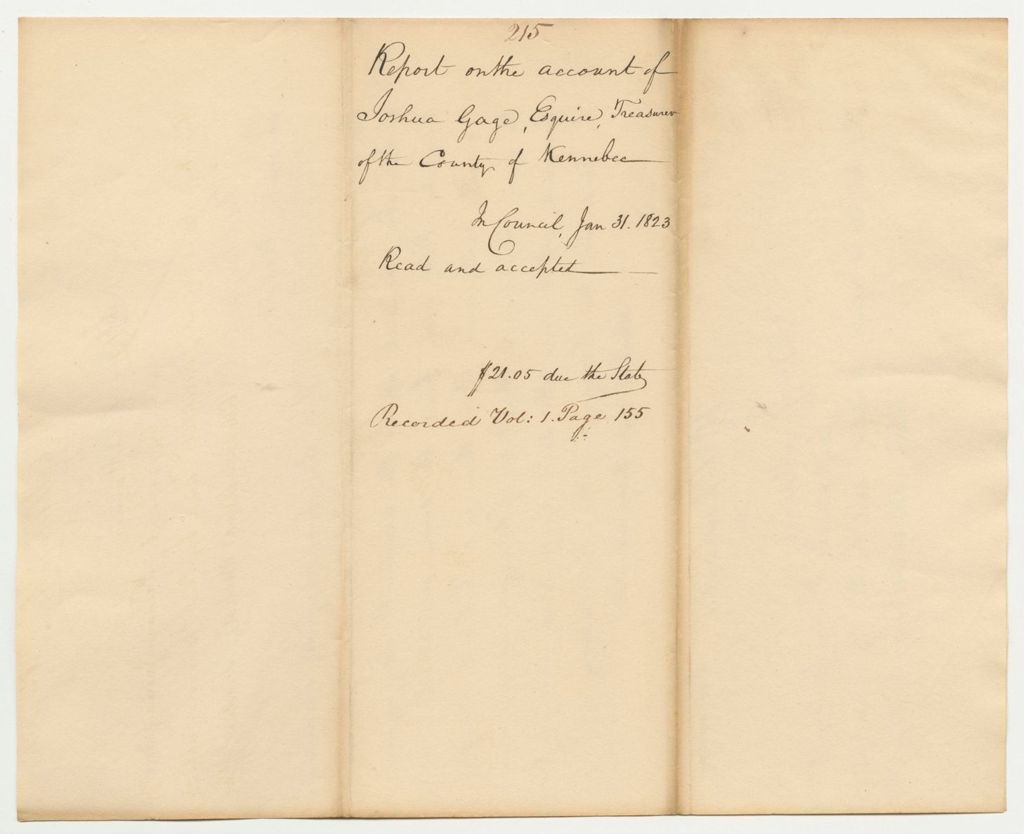 215
Report on the account of
Joshua Gage, Esquire, Treasurer
of the County of Kennebec
In Council, Jan 31. 1823
Read and accepted
$21.05 due the State
Recorded Vol: 1. Page 155